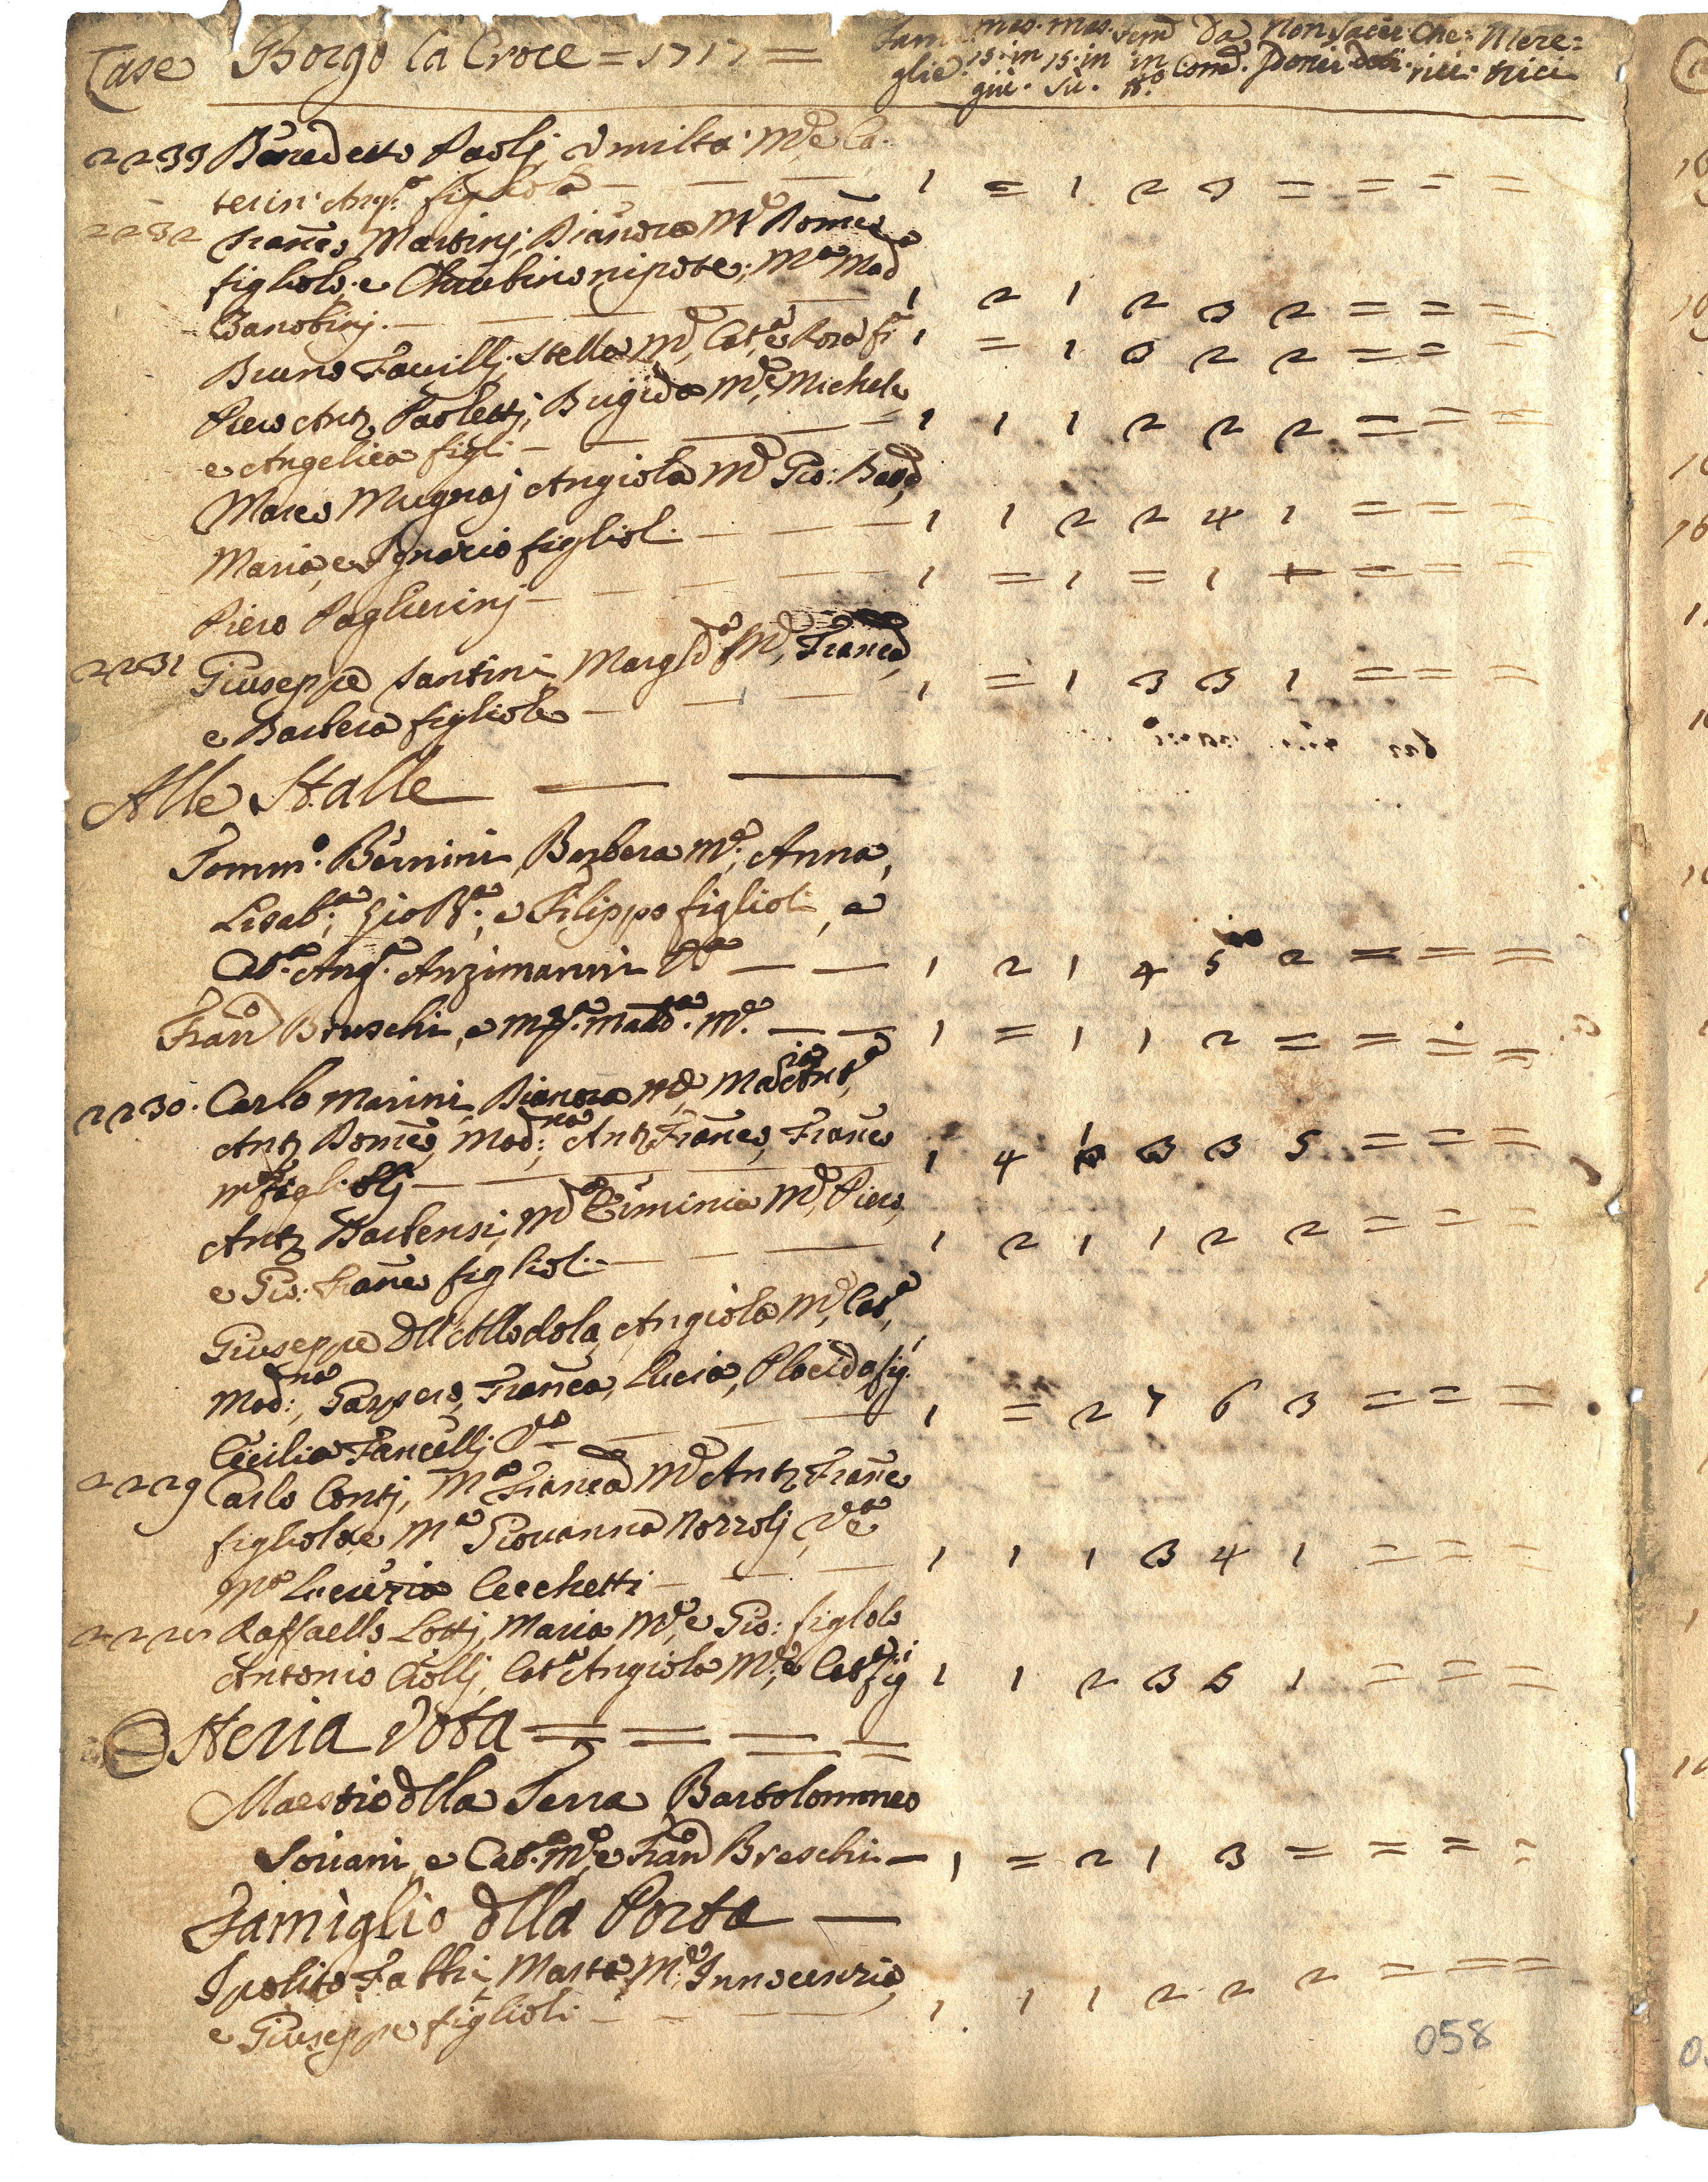 Case Borgo la Croce = 1717 = Fami mas. mas. fem Da Non Sacer Che= Mere=
glie 15. in 15. in in Com. Ponei doti rici trici
giù. Sù. n.º
2233 Benedetto Paolj, Umiltà Mᵉ, e Ca-
terinª Angª figliola — — — 1 = 1 2 3 = = = =
2232 Franco Martinj, Dianora Mᵉ Domco
figliolo, e Cherubino nipote, Mª Madª
Zanobinj. — — — 1 2 1 2 3 2 = = =
Bruno Fauillj, Stella Mᵉ, Catª, e Rosa fi 1 = 1 3 2 2 = = =
Piero Antº Paolettj, Brigida Mᵉ, Michele,
e Angelica figli — — — 1 1 1 2 2 2 = = =
Marco Mugnaj Angiola Mᵉ Gio: Batª,
Maria, e Ignazio figlioli — — — 1 1 2 2 4 1 = = =
Piero Paglierinj — — — 1 = 1 = 1 = = = =
2231 Giuseppe Santini, Margtª Mᵉ, Francª,
e Barbera figliole — — — 1 = 1 3 3 1 = = =
Alle Stalle — —
Tommº. Bernini, Barbera Mᵉ, Anna,
Lisabª; Gio Bª; e Filippo figlioli, e
Catª. Angª. Anzimanni Vª — — 1 2 1 4 5 2 = = =
Franº Bruschi, e Mª. Madª. Mᵉ. — — 1 = 1 1 2 = = = =
2230. Carlo Marini, Dianora Mᵉ, Maria Antª,
Antº Domco, Madna; Antº Franco, Franco
Mª figliolj — — 1 4 1 3 3 5 = = =
Antº Barbensi, Mª Erminia Mᵉ, Piero,
e Gio: Franco figlioli — — 1 2 1 1 2 2 = = =
Giuseppe dll' Allodola, Angiola Mᵉ, Catª,
Madna, Gaspero, Franca, Lucia, Placida fig.
Cecilia Fancellj Vª — — — 1 = 2 7 6 3 = = =
2229 Carlo Contj, Mª Francª Mᵉ Antº Franco
figliolo, e Mª Giouanna Nozzolj, Vª e
Mª Lucrezia Cecchetti — — — 1 1 1 3 4 1 = = =
2228 Raffaello Lottj, Maria Mᵉ, e Gio: figliolo
Antonio Ciollj, Catª Angiola Mᵉ, e Catª fig 1 1 2 3 5 1 = = =
Osteria Vota = = = =
Maestro dlla Serra Bartolommeo
Soriani, e Catª. Mᵉ, e Franº Breschi — 1 = 2 1 3 = = = =
Famiglio dlla Porta —
Ipolito Fabbri, Marta Mᵉ, Innocenzio,
e Giuseppe figlioli — — 1 1 1 2 2 2 = = =
058